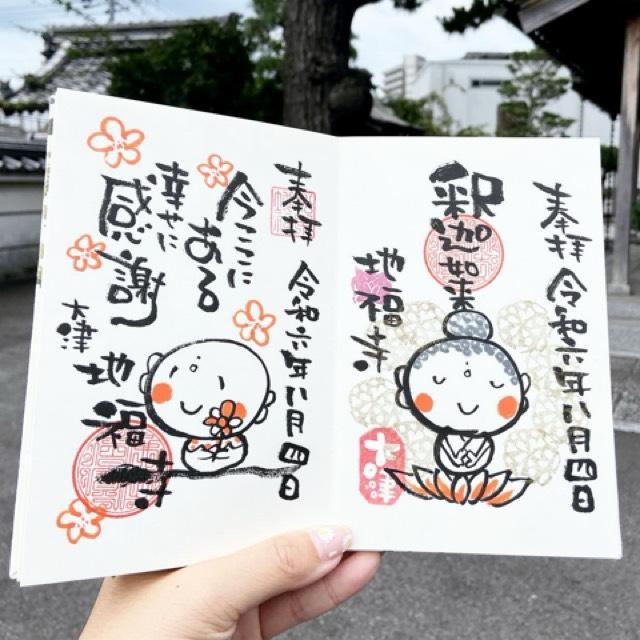 奉拝 令和六年八月四日
釈迦如来
地福寺
大津
奉拝 令和六年八月四日
今ここに
ある
幸せに
感謝
大津 地福寺